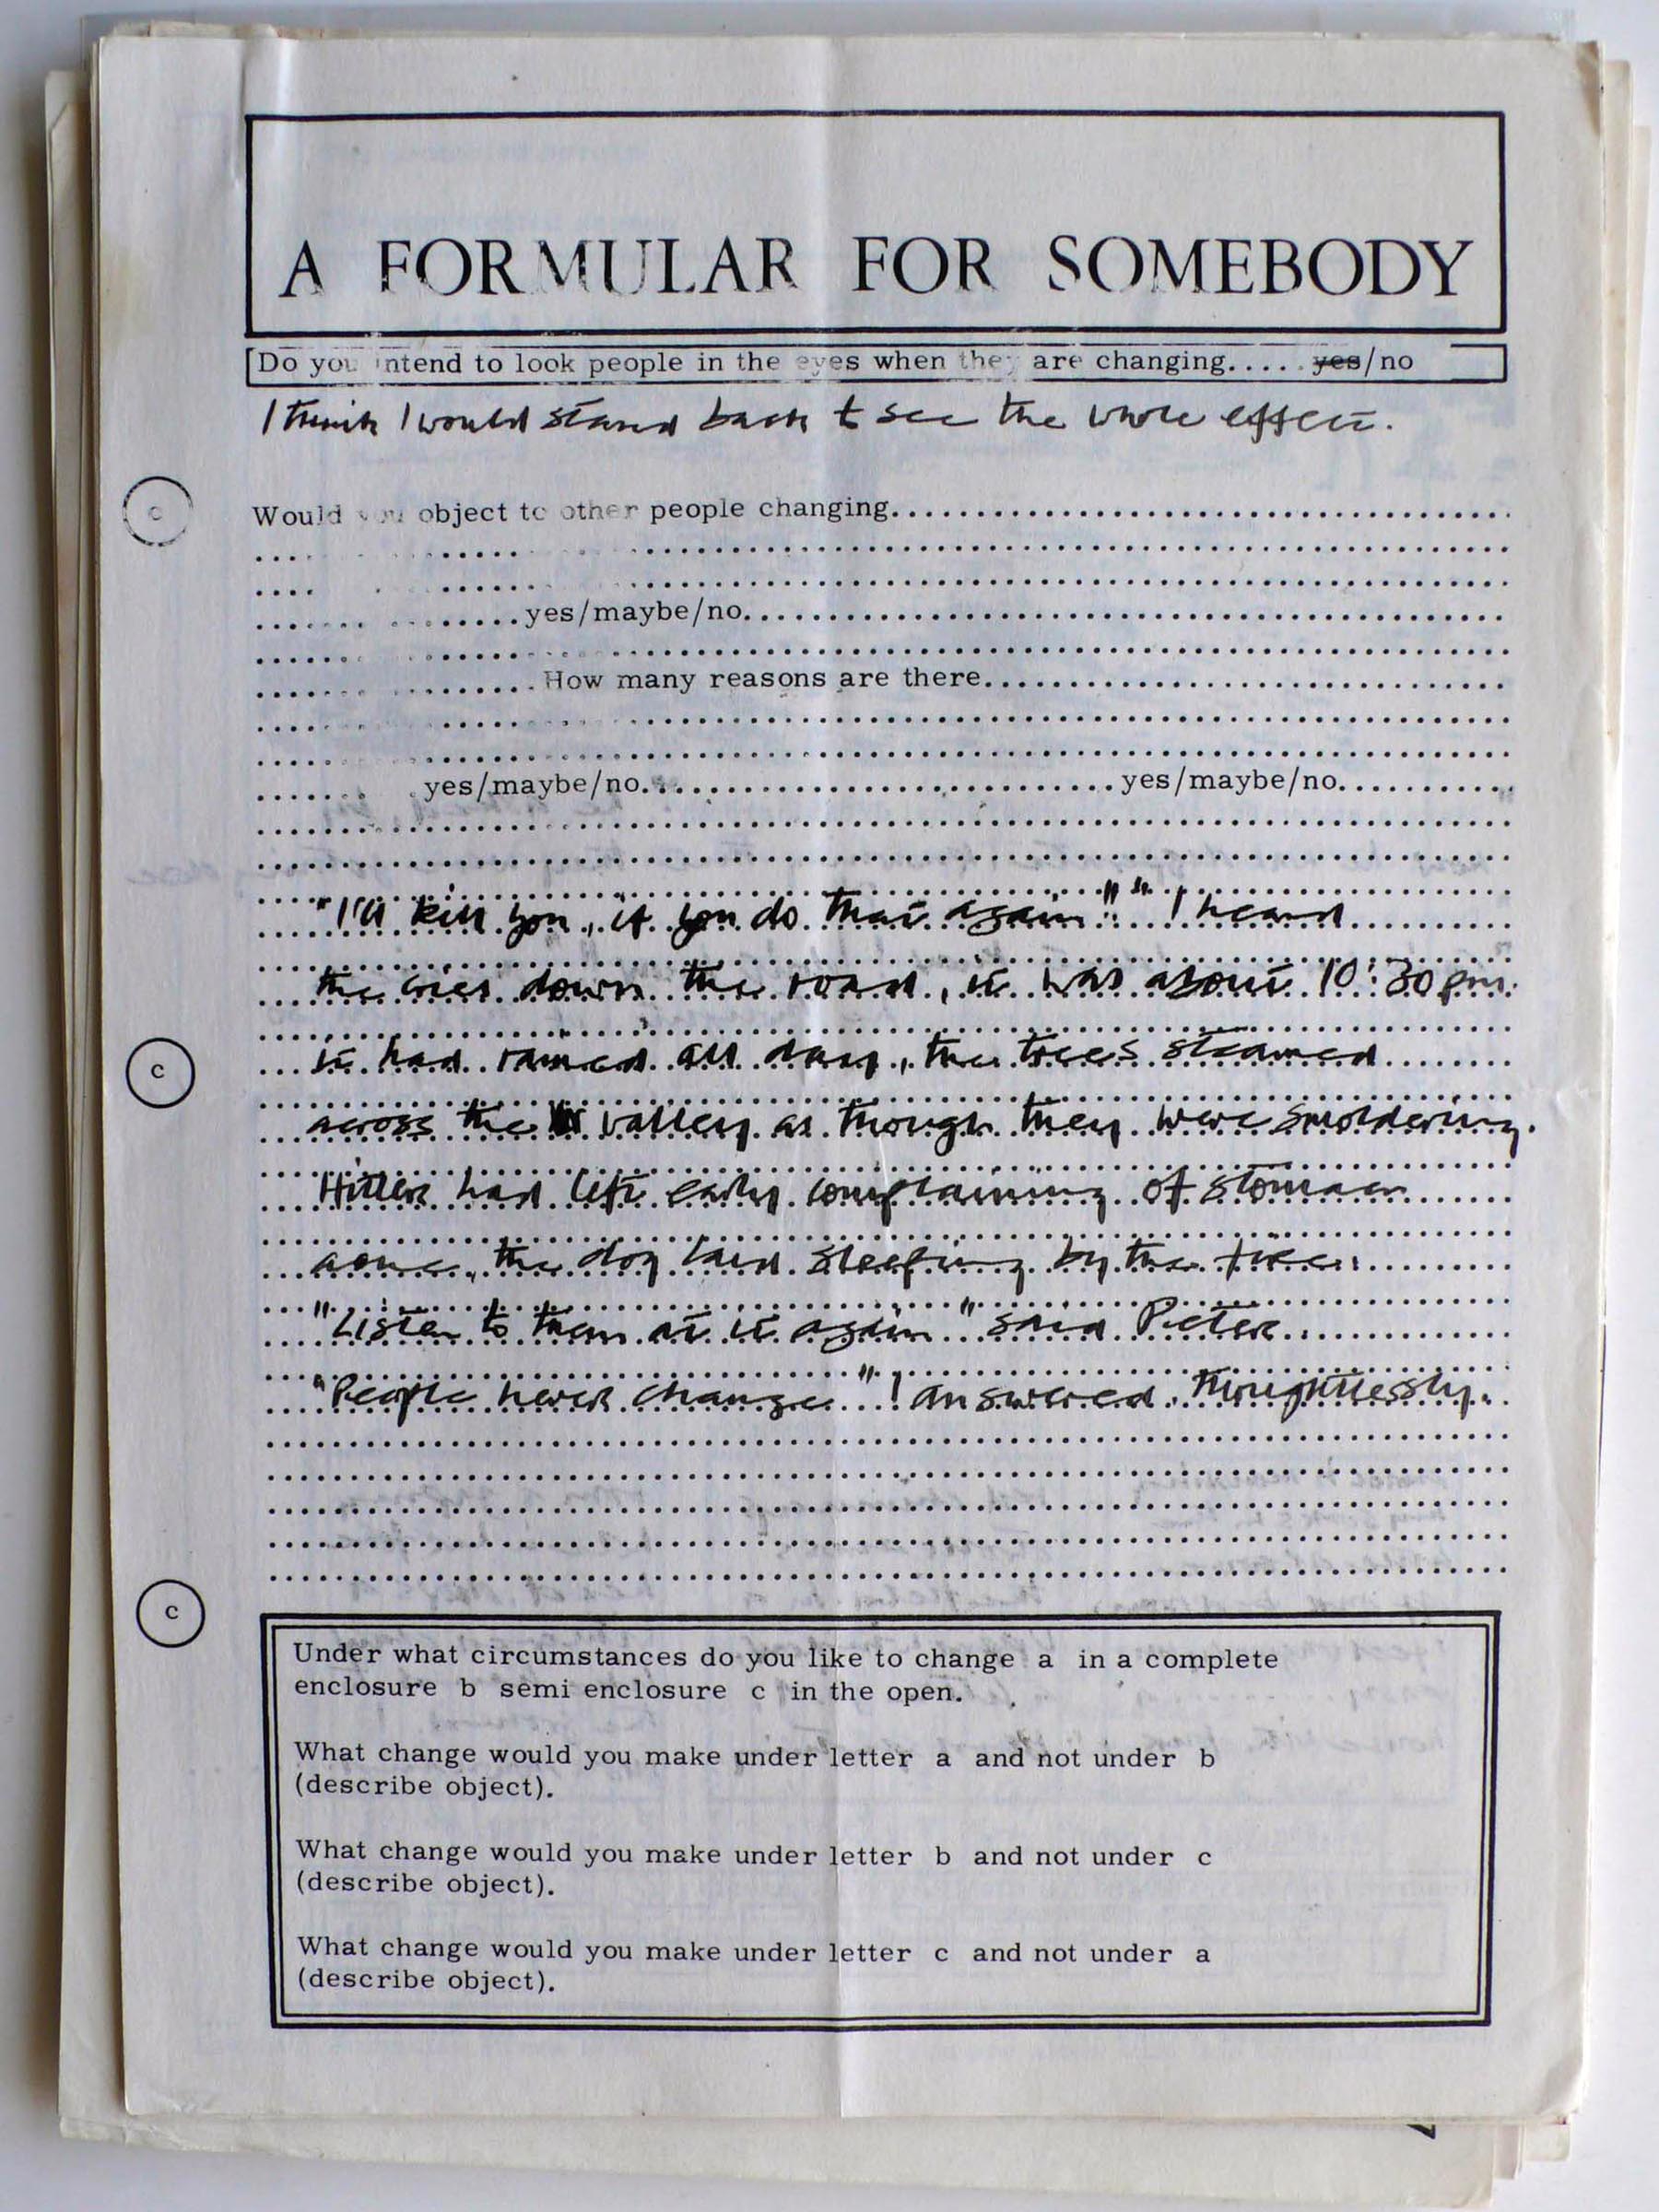 A FORMULAR FOR SOMEBODY
Do you intend to look people in the eyes when they are changing..... yes/no
I think I would stand back to see the whole effect.
c
Would you object to other people changing
yes/maybe/no
How many reasons are there
yes/maybe/no yes/maybe/no
"I'll kill you, if you do that again" I heard
the cries down the road, it was about 10:30 pm.
c
it had rained all day, the trees steamed
across the valley as though they were smoldering.
Hitler had left early complaining of stomac
ache, the dog laid sleeping by the fire.
"Listen to them at it again" said Peter.
"People never change" I answered thoughtlessly.
c
Under what circumstances do you like to change a in a complete
enclosure b semi enclosure c in the open.
What change would you make under letter a and not under b
(describe object).
What change would you make under letter b and not under c
(describe object).
What change would you make under letter c and not under a
(describe object).